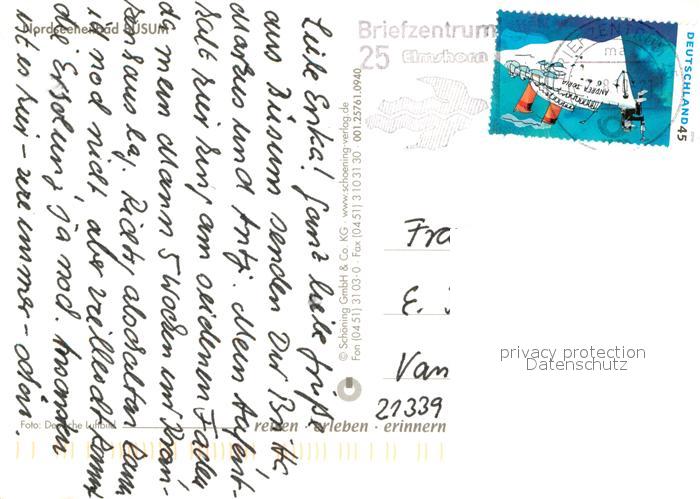 Nordseeheilbad BÜSUM
Liebe Erika! Ganz liebe Grüße
aus Büsum senden Dir
Markus und Antje. Mein Aufent-
halt hier hing am seidenen Faden
da mein Mann 5 Wochen im Kran-
kenhaus lag. Richtig abschalten kann
ich noch nicht, aber vielleicht kommt
die Erholung ja noch. Ansonsten
ist es hier - wie immer - schön.
Foto: Deutsche Luftbild
© Schöning GmbH & Co. KG · www.schoening-verlag.de
Fon (0451) 3103-0 · Fax (0451) 310 31 30 · 001.25761.0940
reisen · erleben · erinnern
Briefzentrum
25 Elmshorn
DEUTSCHLAND 45
ANDREA DORIA
E.
Van
21339
privacy protection
Datenschutz